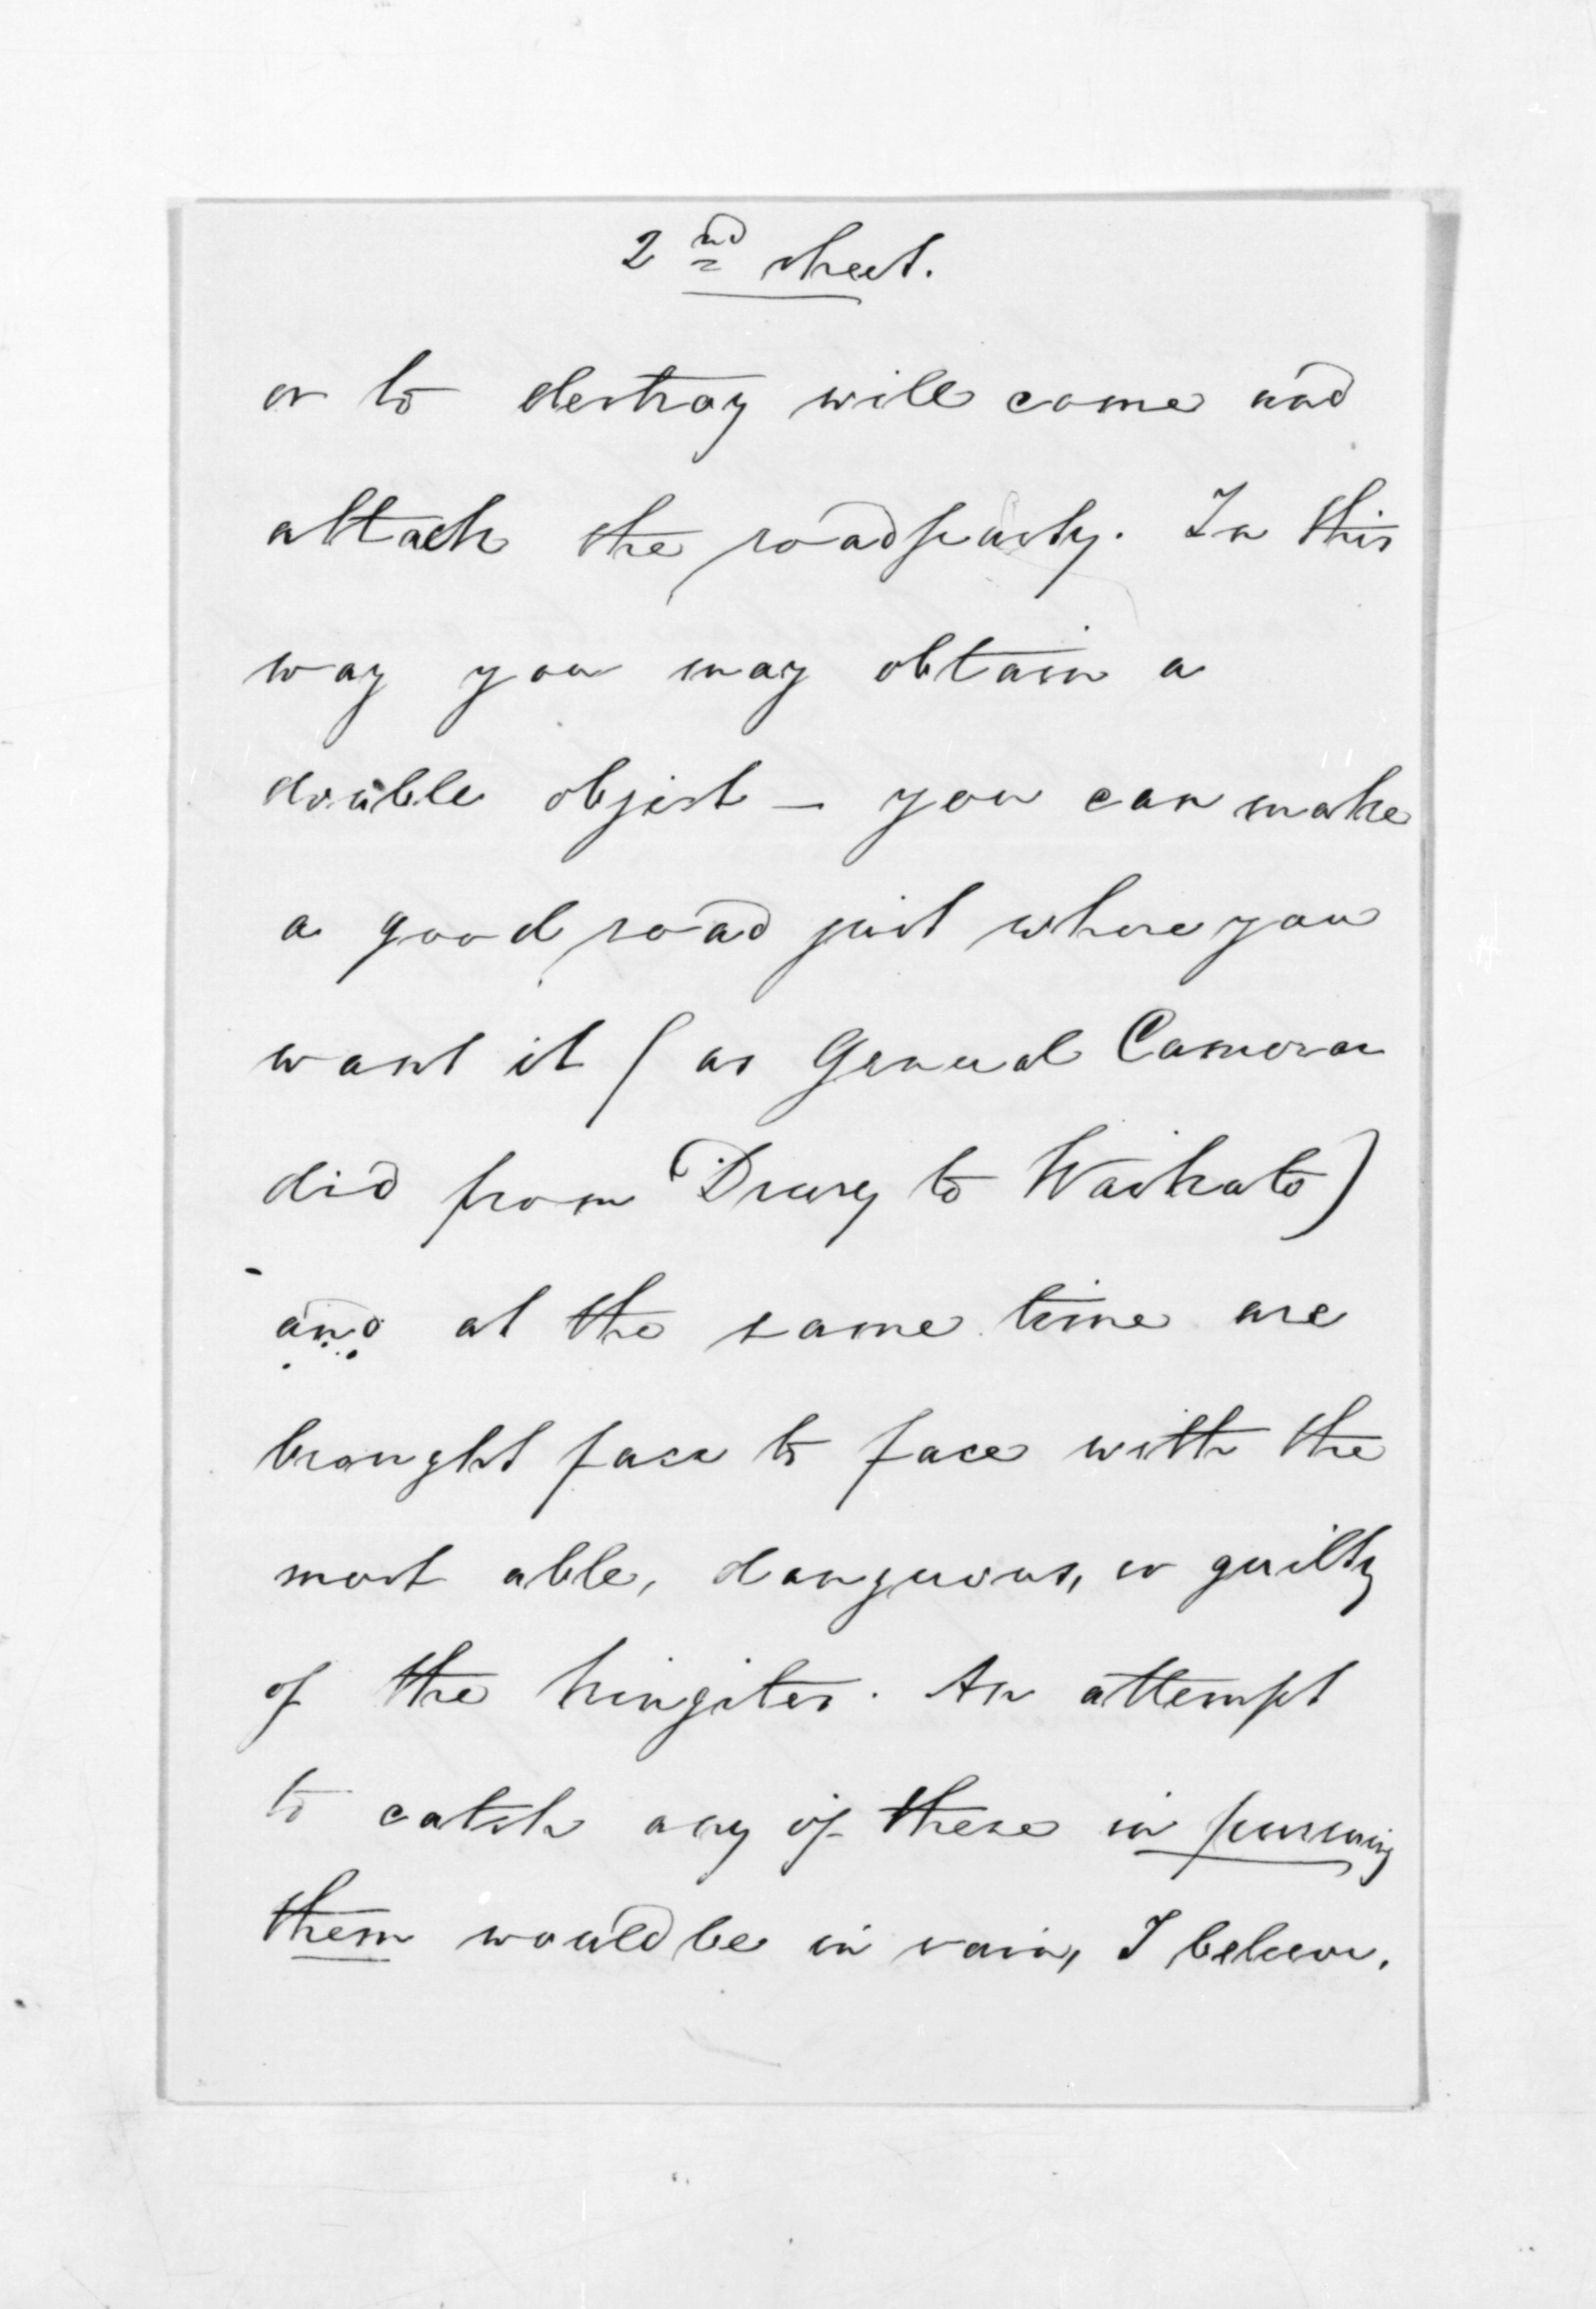 2nd sheet.
or to destroy will come and
attack the road party. In this
way you may obtain a
double object - you can make
a good road just where you
want it (as General Cameron
did from Drury to Waikato)
and at the same time are
brought face to face with the
most able, dangerous, or guilty
of the kingites. An attempt
to catch any of these in pursuing
them would be in vain, I believe.